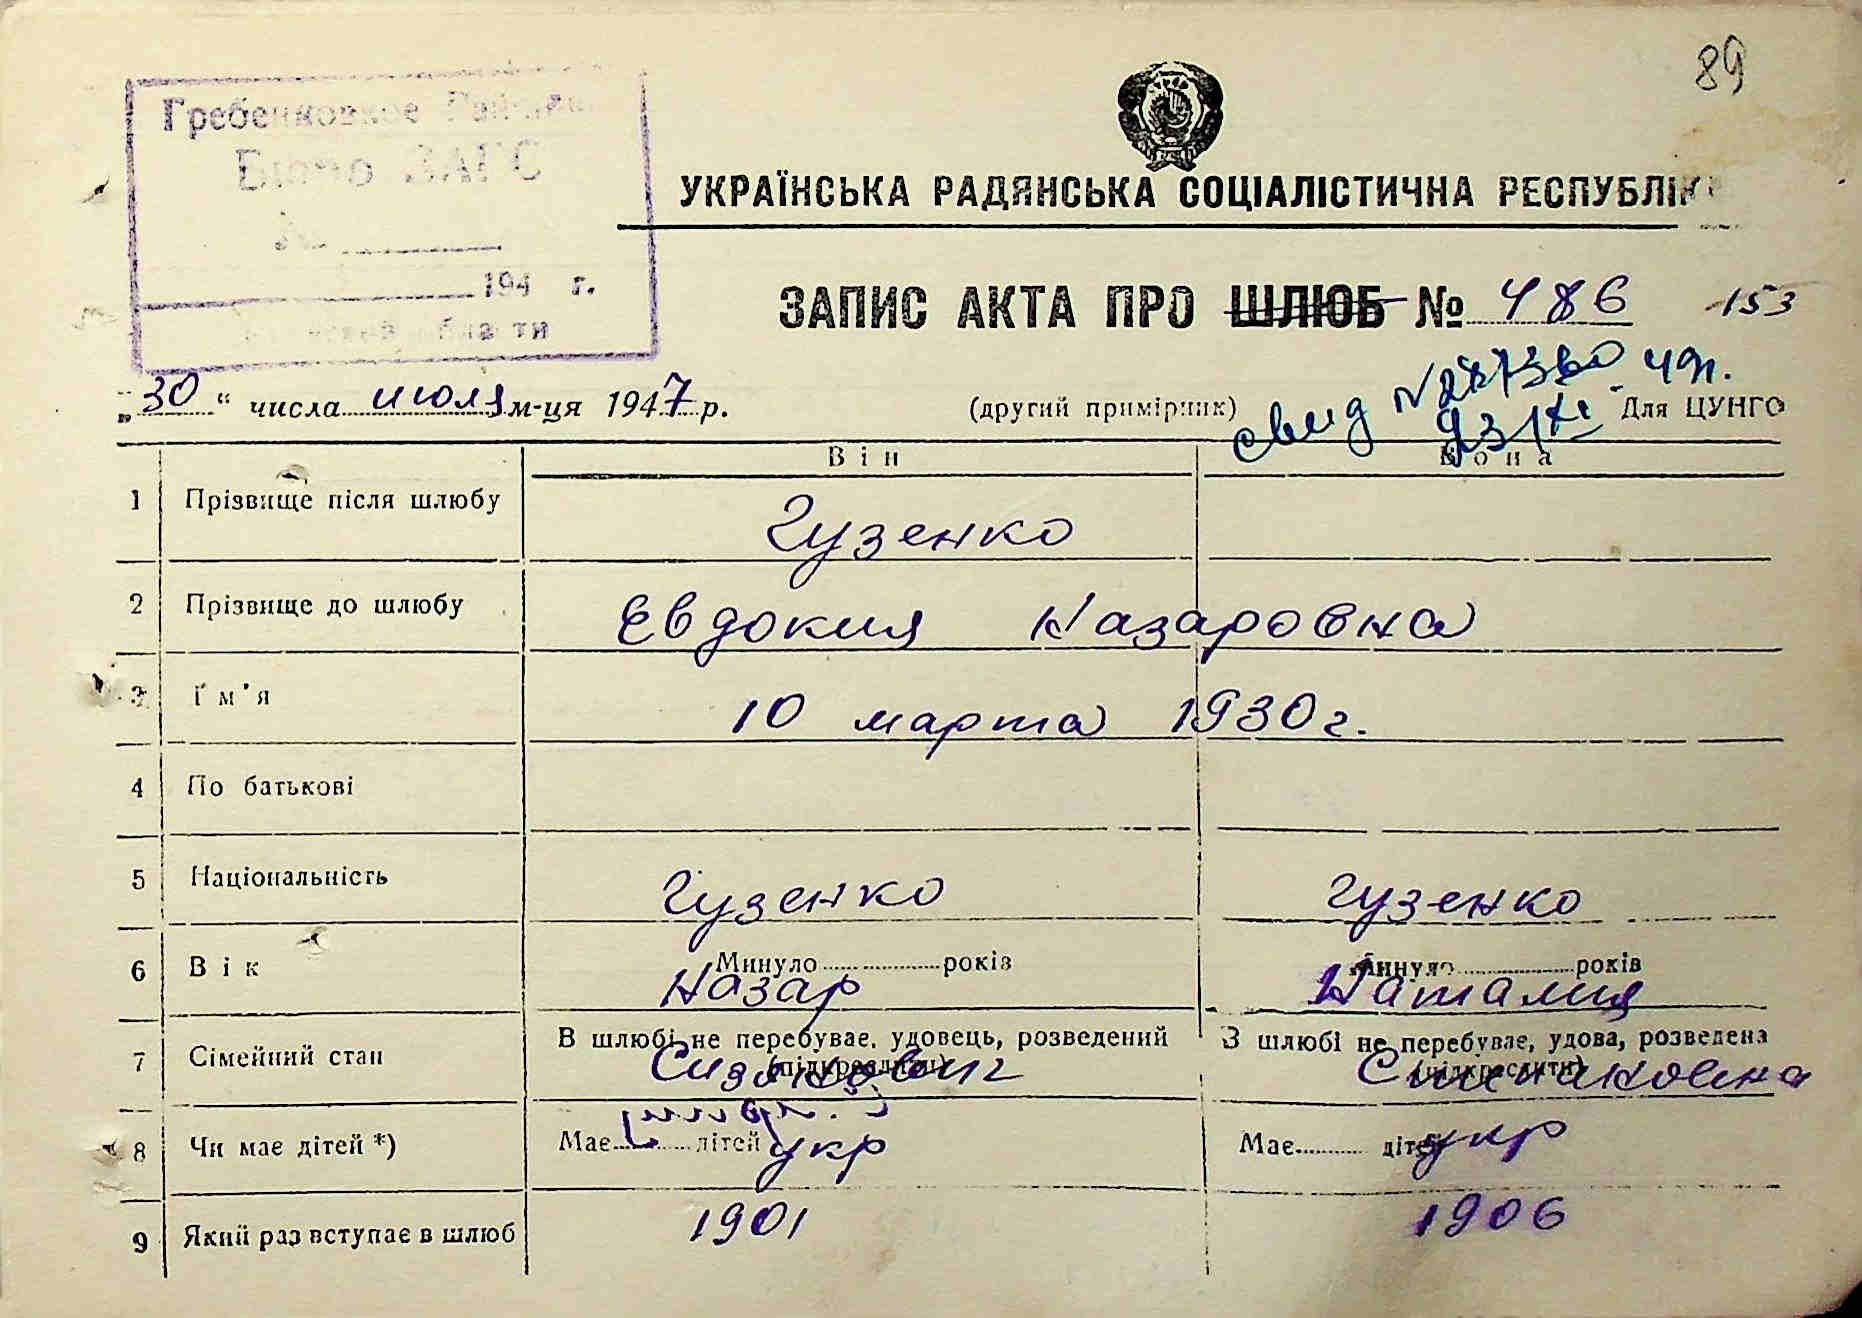 89
Гребенковское
Бюро ЗАГС
194 г.
УКРАЇНСЬКА РАДЯНСЬКА СОЦІАЛІСТИЧНА РЕСПУБЛІК
ЗАПИС АКТА ПРО ШЛЮБ № 486 153
„30“ числа июля м-ця 1947 р. (другий примірник) Для ЦУНГО
свид
Він Вона
1 Прізвище після шлюбу Гузенко
2 Прізвище до шлюбу Евдокия Назаровна
3 Ім'я 10 марта 1930 г.
4 По батькові
5 Національність Гузенко Гузенко
6 Вік Минуло років Минуло років
Назар Наталия
7 Сімейний стан В шлюбі не перебуває, удовець, розведений В шлюбі не перебуває, удова, розведена
(підкреслити) (підкреслити)
8 Чи має дітей *) Має дітей укр Має дітей укр
9 Який раз вступає в шлюб 1901 1906